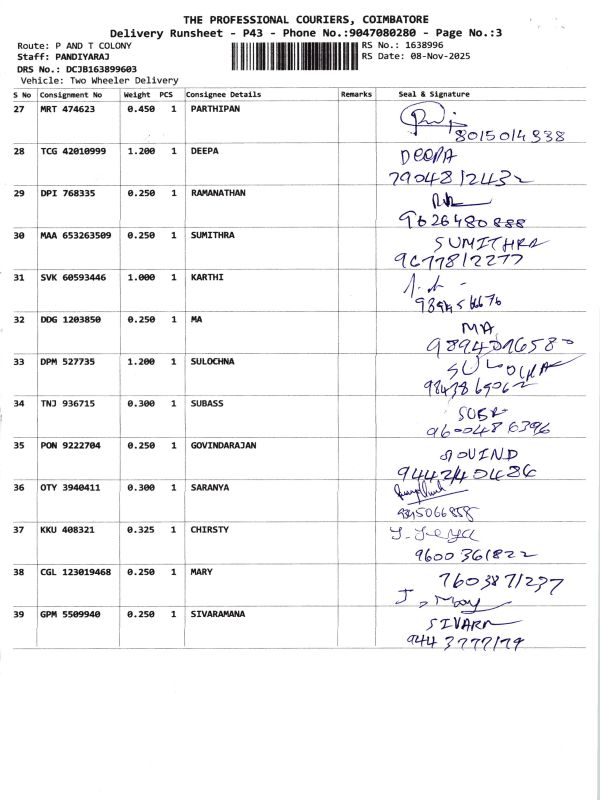 THE PROFESSIONAL COURIERS, COIMBATORE
Delivery Runsheet - P43 - Phone No.:9047080280 - Page No.:3
Route: P AND T COLONY
RS No.: 1638996
Staff: PANDIYARAJ
RS Date: 08-Nov-2025
DRS No.: DCJB163899603
Vehicle: Two Wheeler Delivery
S No Consignment No Weight PCS Consignee Details Remarks Seal & Signature
27 MRT 474623 0.450 1 PARTHIPAN
8015014338
28 TCG 42010999 1.200 1 DEEPA DEEPA
7904812432
29 DPI 768335 0.250 1 RAMANATHAN
9626480888
30 MAA 653263509 0.250 1 SUMITHRA SUMITHRA
9677812277
31 SVK 60593446 1.000 1 KARTHI
32 DDG 1203850 0.250 1 MA MA
9894076580
33 DPM 527735 1.200 1 SULOCHNA
34 TNJ 936715 0.300 1 SUBASS
9600486396
35 PON 9222704 0.250 1 GOVINDARAJAN GOVIND
9442240486
36 OTY 3940411 0.300 1 SARANYA
37 KKU 408321 0.325 1 CHIRSTY J. Jeya
9600361822
38 CGL 123019468 0.250 1 MARY 7603871237
J. Mary
39 GPM 5509940 0.250 1 SIVARAMANA SIVARA
9443777179